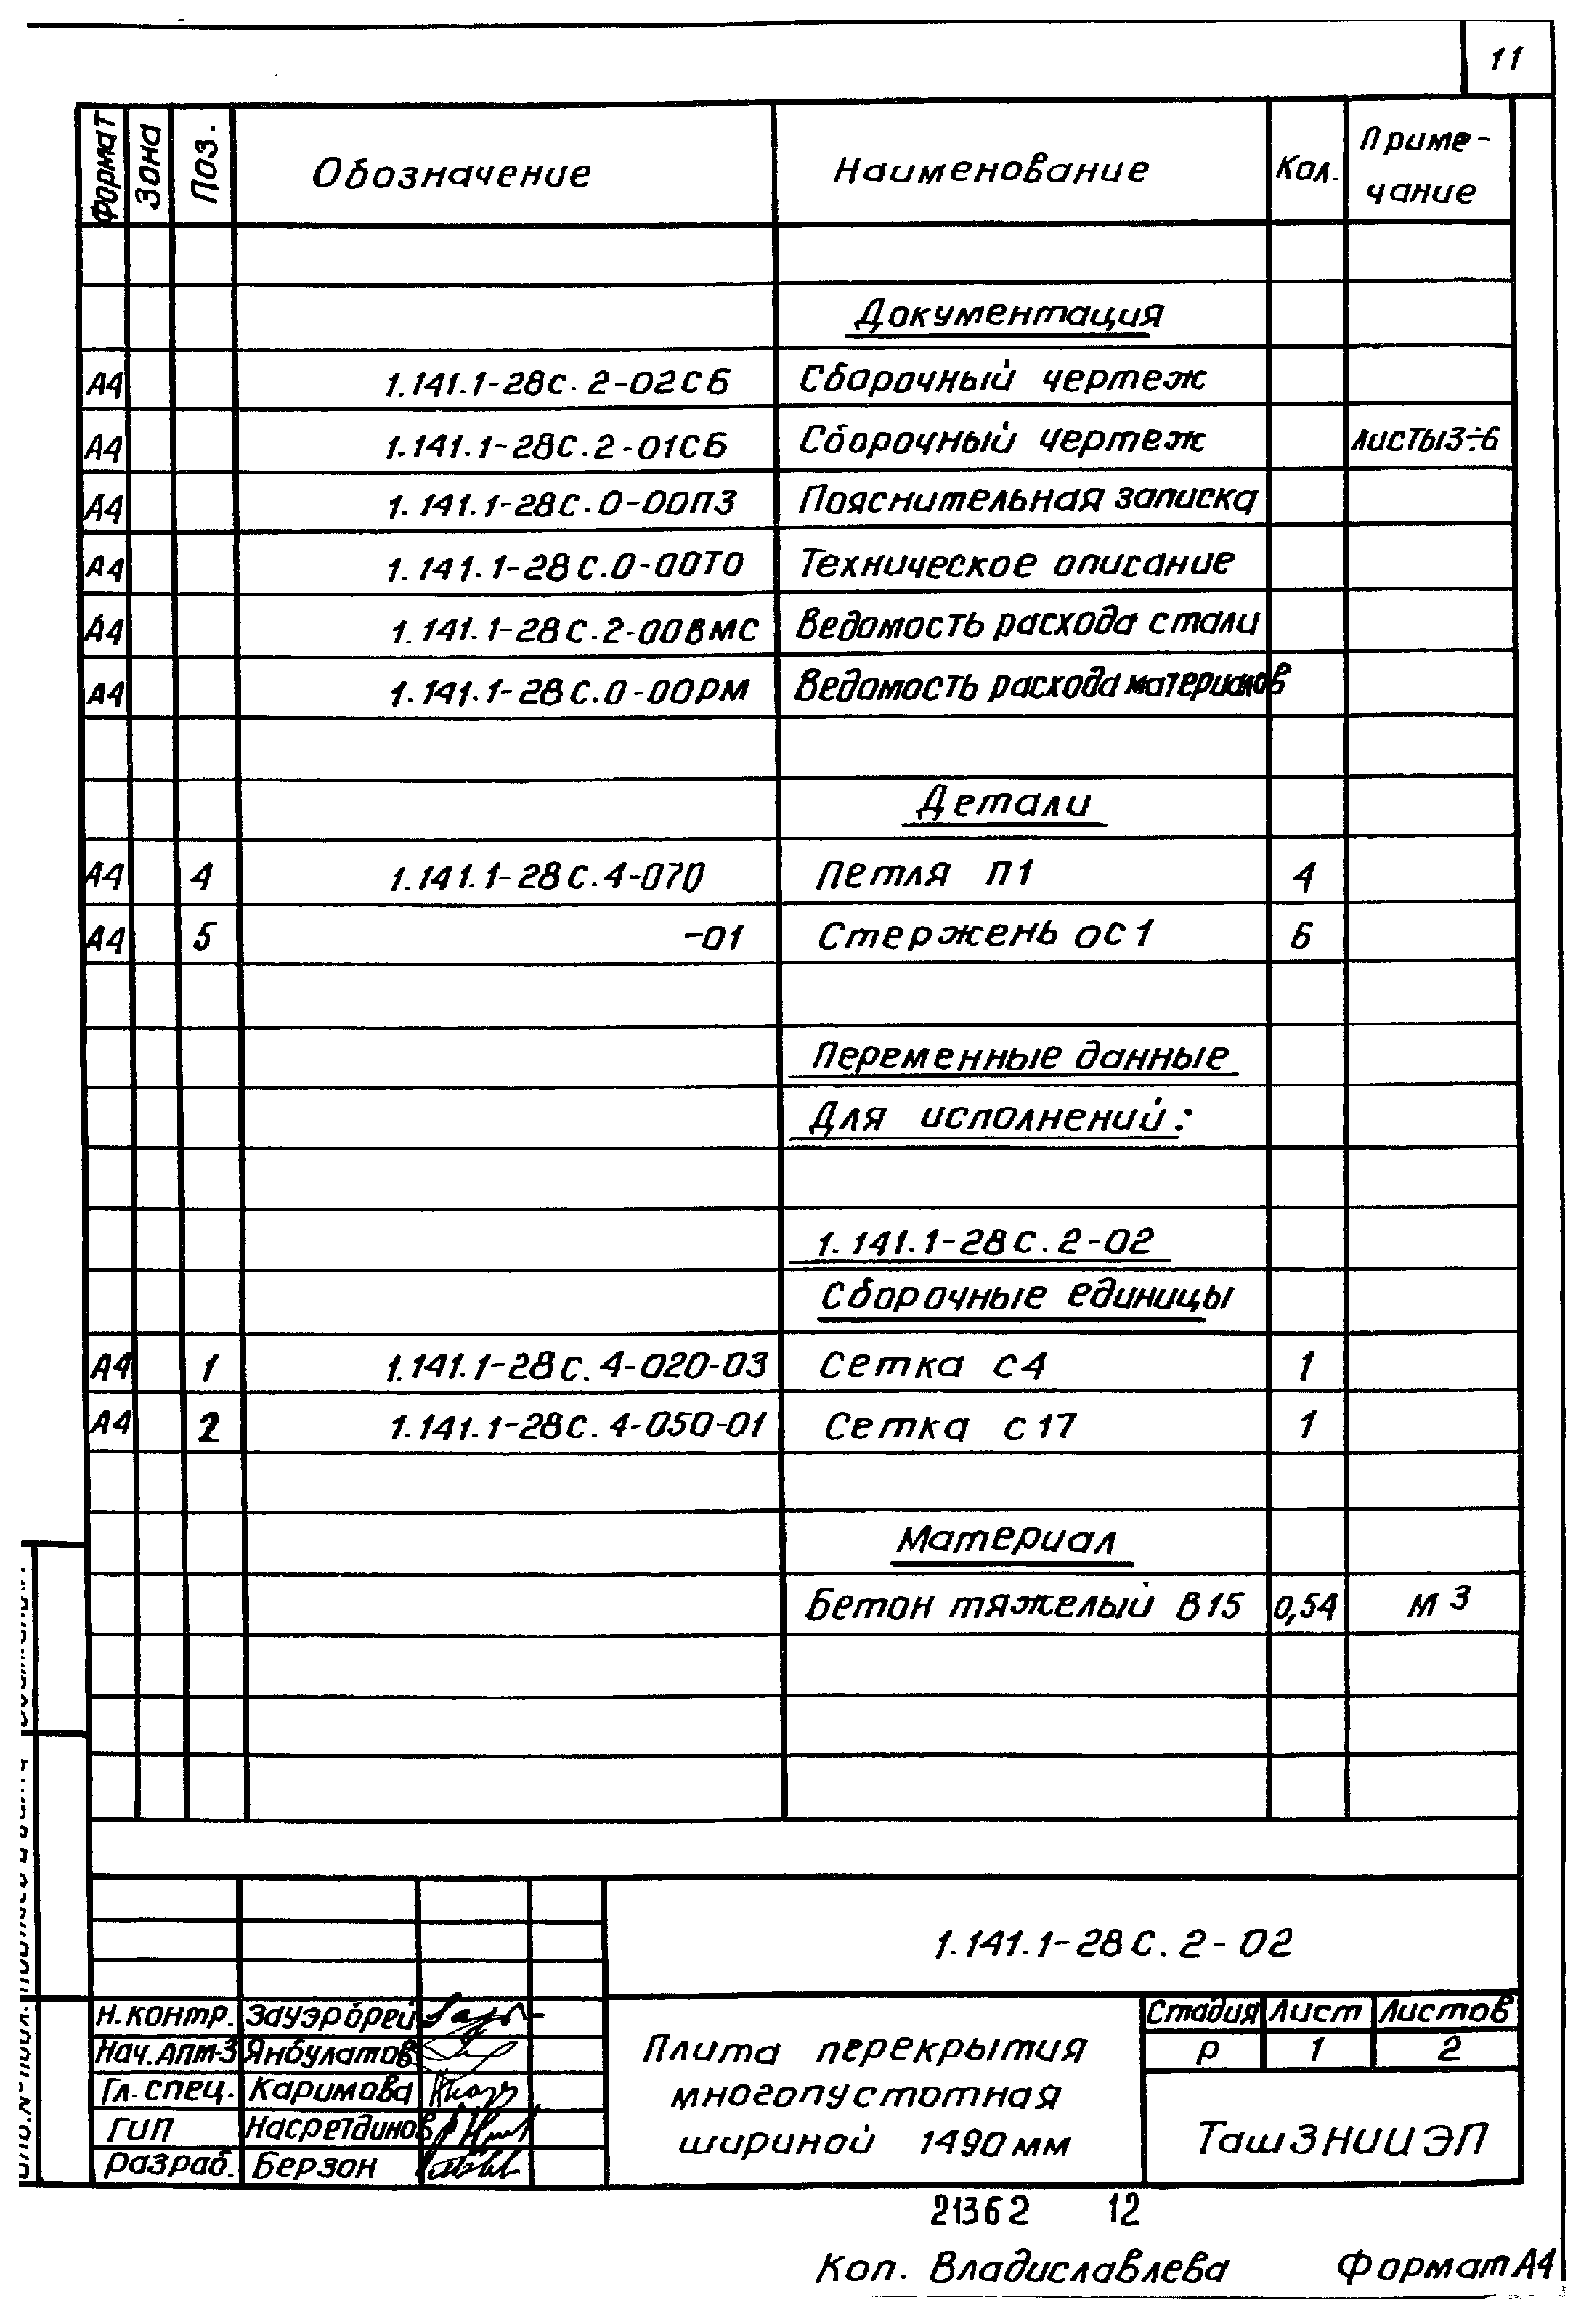 11
Формат Зона Поз. Обозначение Наименование Кол. Приме-
чание
Документация
А4 1.141.1-28С.2-02СБ Сборочный чертеж
А4 1.141.1-28С.2-01СБ Сборочный чертеж листы3÷6
А4 1.141.1-28С.0-00ПЗ Пояснительная записка
А4 1.141.1-28С.0-00ТО Техническое описание
А4 1.141.1-28С.2-00ВМС Ведомость расхода стали
А4 1.141.1-28С.0-00РМ Ведомость расхода материалов
Детали
А4 4 1.141.1-28С.4-070 Петля П1 4
А4 5 -01 Стержень ОС1 6
Переменные данные
Для исполнений:
1.141.1-28С.2-02
Сборочные единицы
А4 1 1.141.1-28С.4-020-03 Сетка С4 1
А4 2 1.141.1-28С.4-050-01 Сетка С17 1
Материал
Бетон тяжелый В15 0,54 м3
1.141.1-28С.2-02
Н.контр. Зауэрбрей
Нач.АПМ-3 Янбулатов
Гл.спец. Каримова
ГИП Насретдинов
Разраб. Берзон
Плита перекрытия
многопустотная
шириной 1490мм
Стадия Лист Листов
Р 1 2
ТашЗНИИЭП
21362 12
Коп. Владиславлева Формат А4